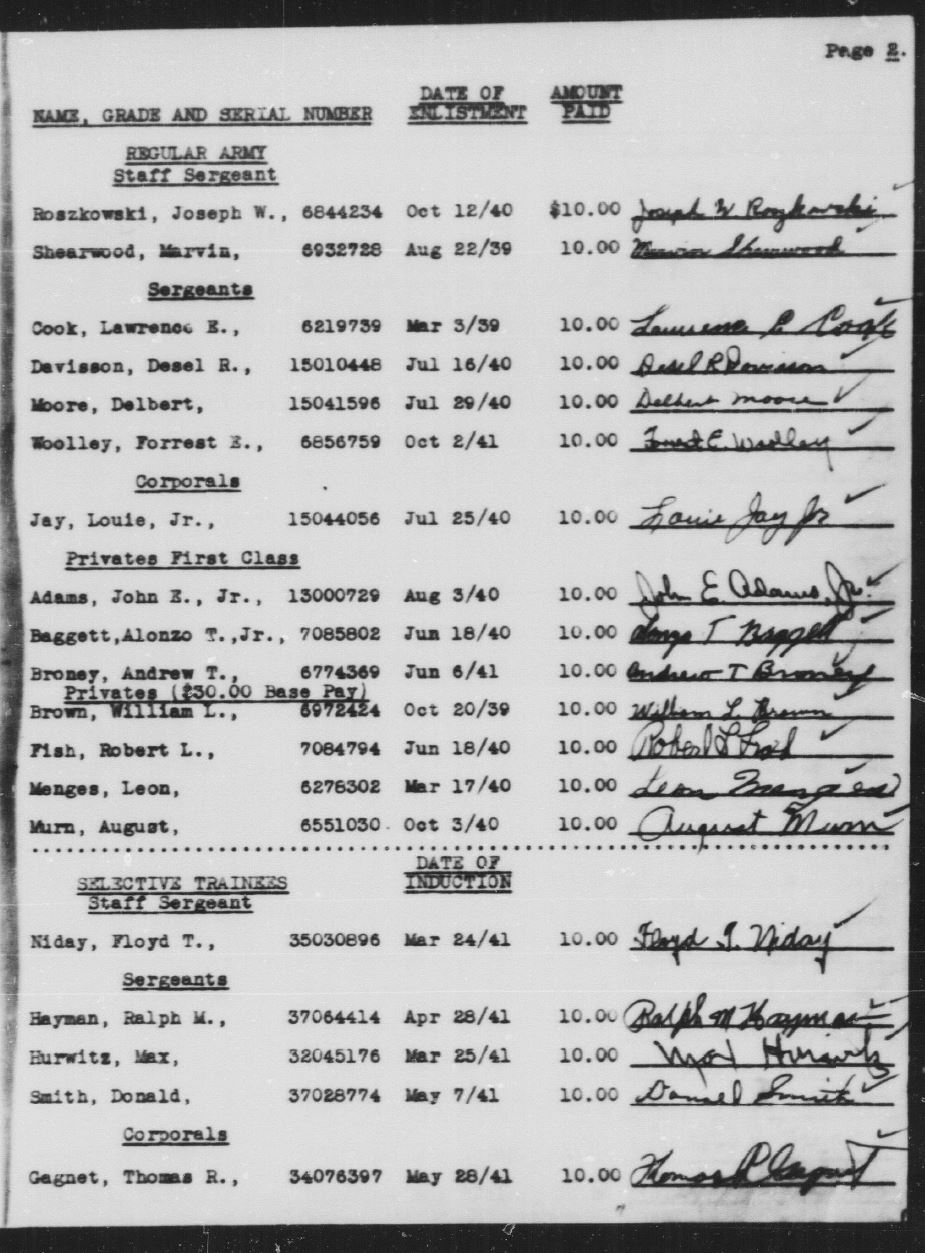 Page 2.
NAME, GRADE AND SERIAL NUMBER DATE OF ENLISTMENT AMOUNT PAID
REGULAR ARMY
Staff Sergeant
Roszkowski, Joseph W., 6844234 Oct 12/40 $10.00 Joseph W Roszkowski
Shearwood, Marvin, 6932728 Aug 22/39 10.00 Marvin Shearwood
Sergeants
Cook, Lawrence E., 6219739 Mar 3/39 10.00 Lawrence E Cook
Davisson, Desel R., 15010448 Jul 16/40 10.00 Desel R Davisson
Moore, Delbert, 15041596 Jul 29/40 10.00 Delbert Moore
Woolley, Forrest E., 6856759 Oct 2/41 10.00 Forrest E. Woolley
Corporals
Jay, Louie, Jr., 15044056 Jul 25/40 10.00 Louie Jay Jr
Privates First Class
Adams, John E., Jr., 13000729 Aug 3/40 10.00 John E. Adams, Jr.
Baggett,Alonzo T.,Jr., 7085802 Jun 18/40 10.00 Alonzo T Baggett
Broney, Andrew T., 6774369 Jun 6/41 10.00 Andrew T Broney
Privates ($30.00 Base Pay)
Brown, William L., 6972424 Oct 20/39 10.00 William L. Brown
Fish, Robert L., 7084794 Jun 18/40 10.00 Robert L Fish
Menges, Leon, 6278302 Mar 17/40 10.00 Leon Menges
Murn, August, 6551030 Oct 3/40 10.00 August Murn
DATE OF INDUCTION
SELECTIVE TRAINEES
Staff Sergeant
Niday, Floyd T., 35030896 Mar 24/41 10.00 Floyd T. Niday
Sergeants
Hayman, Ralph M., 37064414 Apr 28/41 10.00 Ralph M Hayman
Hurwitz, Max, 32045176 Mar 25/41 10.00 Max Hurwitz
Smith, Donald, 37028774 May 7/41 10.00 Donald Smith
Corporals
Gagnet, Thomas R., 34076397 May 28/41 10.00 Thomas R Gagnet